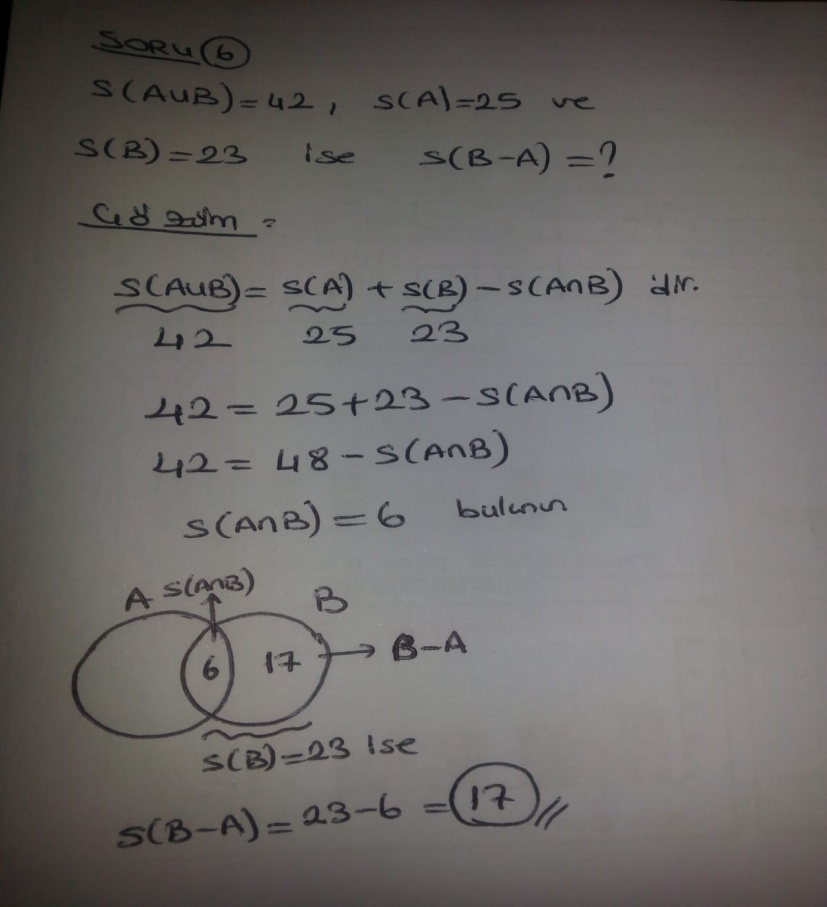 SORU 6
S(A∪B)=42, S(A)=25 ve
S(B)=23 ise S(B-A)=?
Çözüm:
S(A∪B)= S(A) + S(B) - S(A∩B) dır.
42 25 23
42 = 25+23 - S(A∩B)
42 = 48 - S(A∩B)
S(A∩B) = 6 bulunur
A S(A∩B) B
6 17 → B-A
S(B)=23 ise
S(B-A)= 23-6 = 17